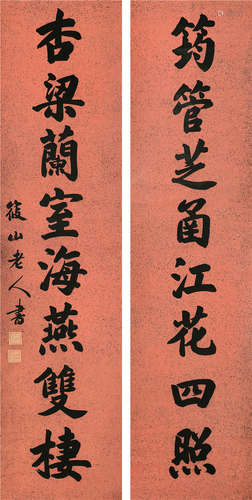 筠管芝圅江花四照
杏梁蘭室海燕雙棲
筱山老人書